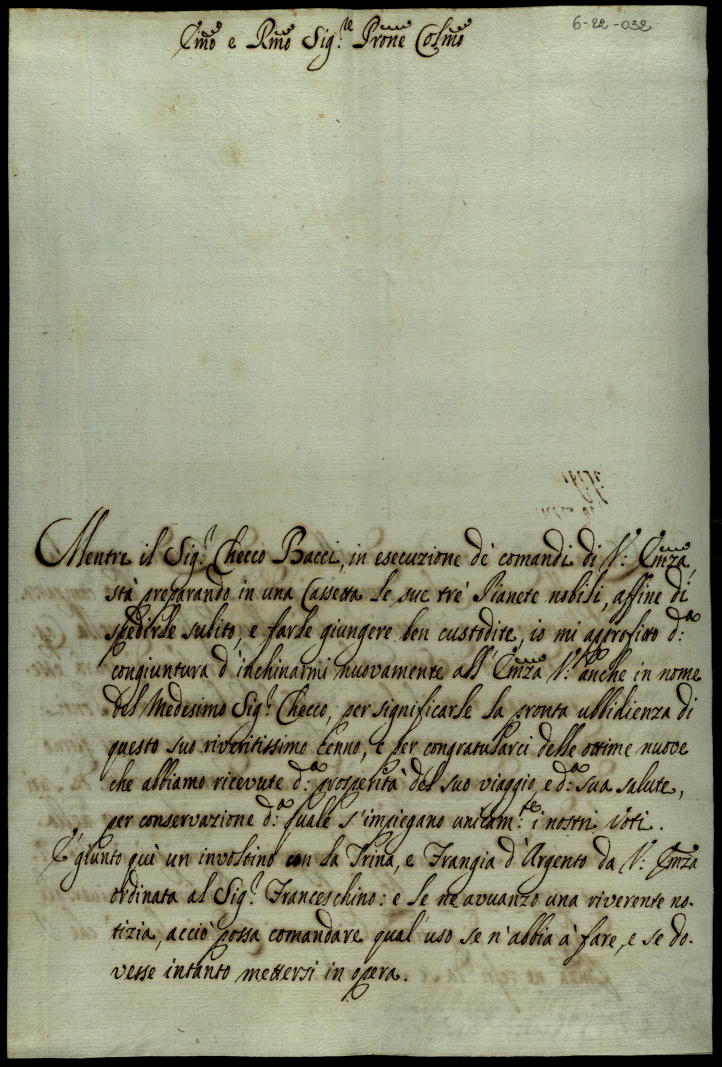 6-22-032
Em̃o e Rm̃o Sig.re Pñne Colm̃o
Mentre il Sig.r Checco Bacci, in esecuzione de' comandi di V: Em̃za,
stà preparando in una Cassetta le sue trè Pianete nobili, affine di
spedirle subito, e farle giungere ben custodite, io mi approfitto d.a
congiuntura d'inchinarmi nuovamente all'Em̃za V.a anche in nome
del Medesimo Sig.r Checco, per significarle la pronta ubbidienza di
questo suo riveritissimo Cenno, e per congratularci delle ottime nuove
che abbiamo ricevute d.a prosperità del suo viaggio, e d.a sua salute,
per conservazione d.a quale s'impiegano unitam.te i nostri voti.
E' giunto quì un involtino con la Trina, e Frangia d'Argento da V: Em̃za
ordinata al Sig.r Franceschino: e le ne avvanzo una riverente no-
tizia, acciò possa comandare qual'uso se n'abbia à fare, e se do-
vesse intanto mettersi in opera.